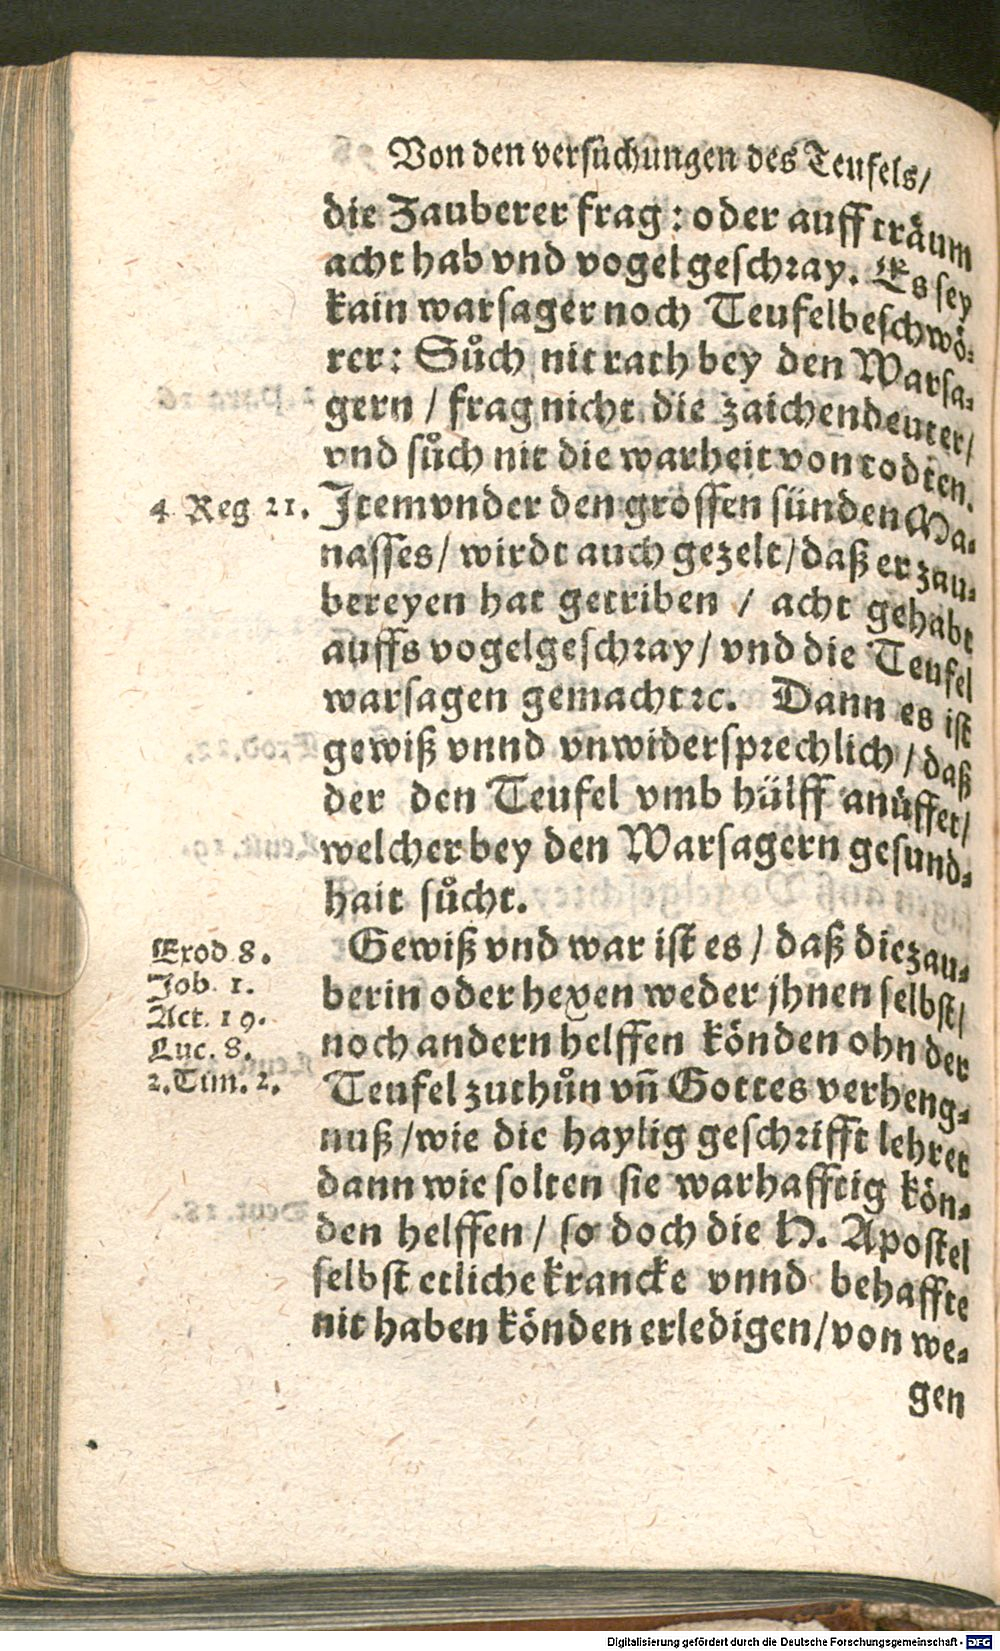 Von den versuchungen des Teufels/
die Zauberer frag: oder auff träum
acht hab vnd vogelgeschray. Es sey
kain warsager noch Teufelbeschwö-
rer: Sůch nit rath bey den Warsa-
gern / frag nicht die zaichendeuter/
vnd sůch nit die warheit von todten.
4 Reg 21.
Item vnder den grossen sünden Ma-
nasses/ wirdt auch gezelt/daß er zau-
bereyen hat getriben / acht gehabt
auffs vogelgeschray/ vnd die Teufel
warsagen gemacht ꝛc. Dann es ist
gewiß vnnd vnwidersprechlich / daß
der den Teufel vmb hülff anüffet/
welcher bey den Warsagern gesund-
hait sůcht.
Exod 8.
Job 1.
Act. 19.
Luc. 8.
2.Tim. 2.
Gewiß vnd war ist es / daß die zau-
berin oder hexen weder jhnen selbst/
noch andern helffen könden ohn der
Teufel zuthůn vñ Gottes verheng-
nuß /wie die haylig geschrifft lehret
dann wie solten sie warhafftig kön-
den helffen / so doch die H. Apostel
selbst etliche krancke vnnd behaffte
nit haben könden erledigen/von we-
gen
Digitalisierung gefördert durch die Deutsche Forschungsgemeinschaft - DFG